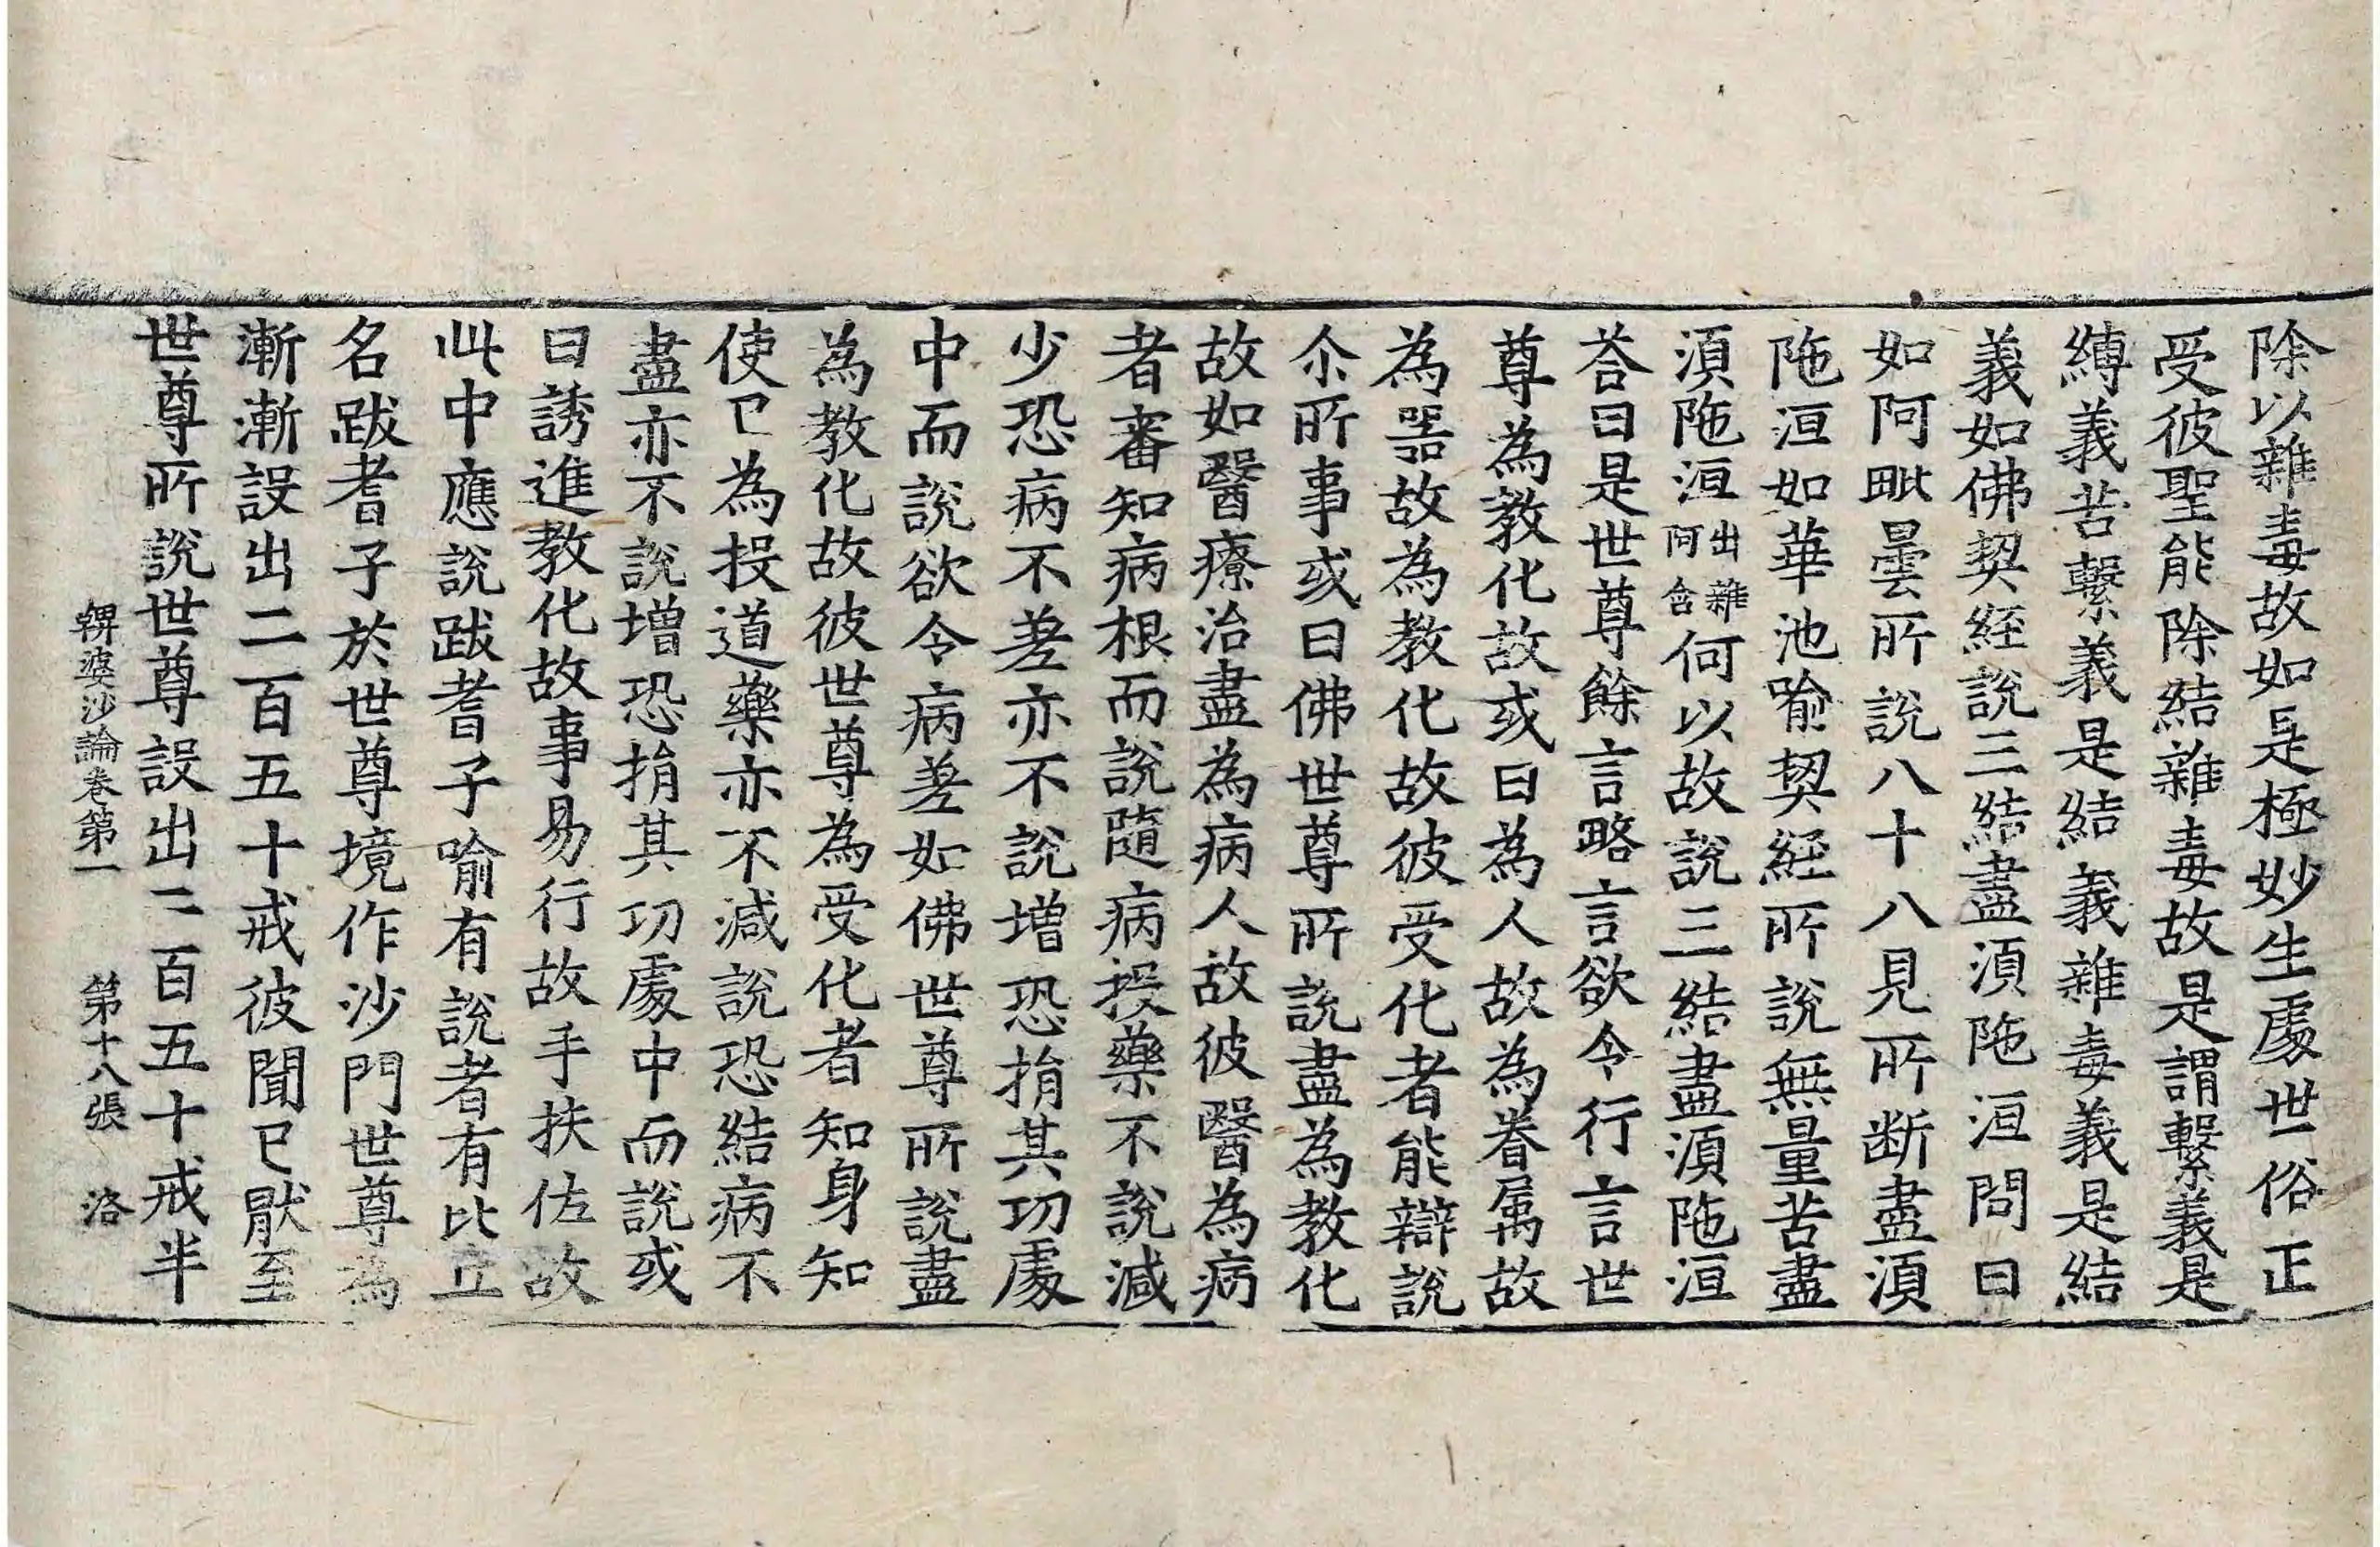 除以雜毒故如是極妙生處世俗正
受彼聖能除結雜毒故是謂繫義是
縛義苦繫義是結義雜毒義是結
義如佛契經說三結盡湏陁洹問曰
如阿毗曇所說八十八見所断盡湏
陁洹如華池喻契經所說無量苦盡
湏陁洹出雜阿含何以故說三結盡湏陁洹
荅曰是世尊餘言略言欲令行言世
尊為教化故或曰為人故為眷屬故
為器故為教化故彼受化者能辯說
尒所事或曰佛世尊所說盡為教化
故如醫療治盡為病人故彼醫為病
者審知病根而說隨病授藥不說減
少恐病不差亦不說增恐捐其功處
中而說欲令病差如佛世尊所說盡
為教化故彼世尊為受化者知身知
使已為授道藥亦不減說恐結病不
盡亦不說增恐捐其功處中而說或
曰誘進教化故事易行故手扶佐故
此中應說跋耆子喻有說者有比丘
名跋耆子於世尊境作沙門世尊為
漸漸設出二百五十戒彼聞已猒至
世尊所說世尊設出二百五十戒半
鞞婆沙論卷第一　第十八張　洛